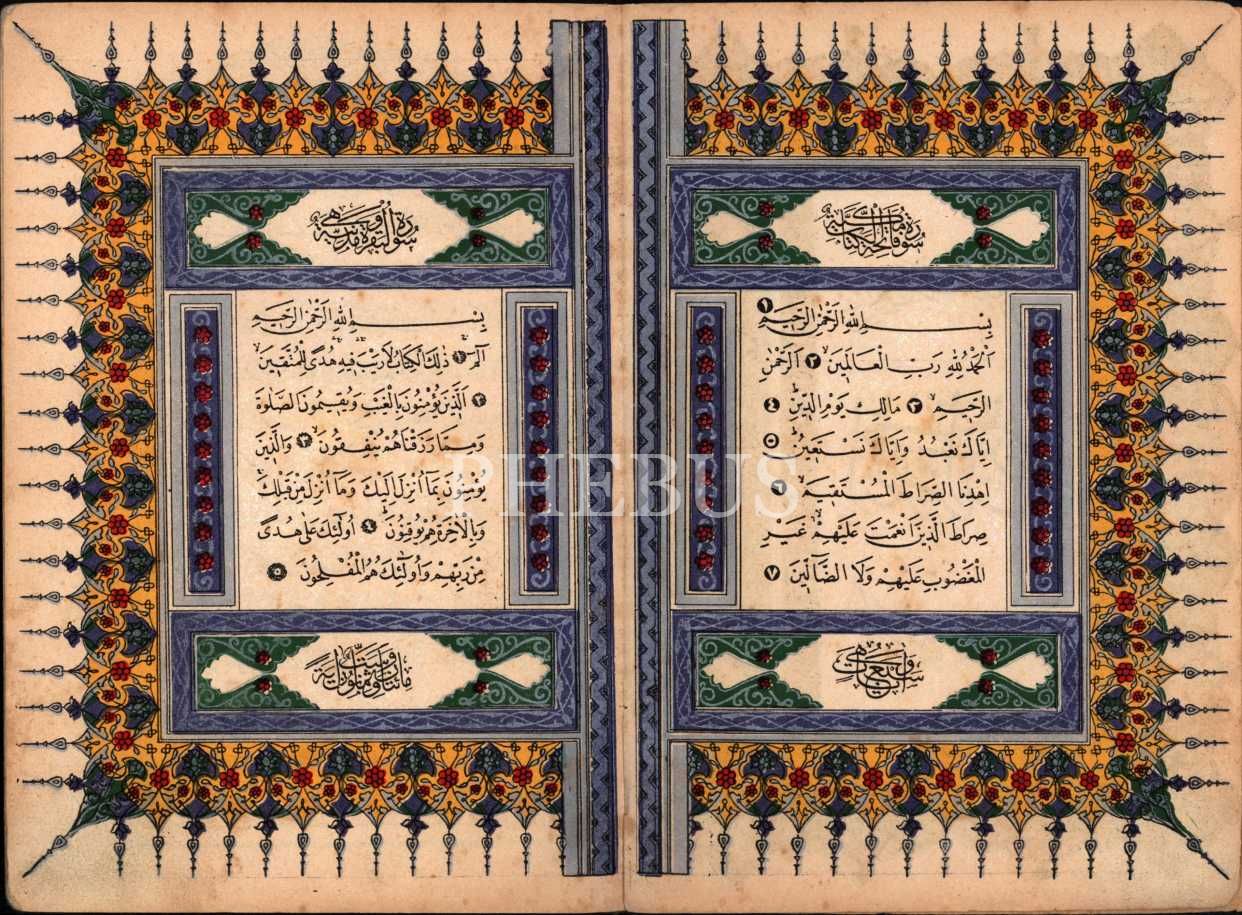 سورة فاتحة الكتاب مكية
بِسْمِ اللهِ الرَّحْمٰنِ الرَّحِيمِ ١
اَلْحَمْدُ لِلّٰهِ رَبِّ الْعَالَمِينَ ٢ اَلرَّحْمٰنِ
الرَّحِيمِ ٣ مَالِكِ يَوْمِ الدِّينِ ٤
اِيَّاكَ نَعْبُدُ وَاِيَّاكَ نَسْتَعِينُ ٥
اِهْدِنَا الصِّرَاطَ الْمُسْتَقِيمَ ٦
صِرَاطَ الَّذِينَ اَنْعَمْتَ عَلَيْهِمْ غَيْرِ
الْمَغْضُوبِ عَلَيْهِمْ وَلَا الضَّالِّينَ ٧
وهي سبع آيات
سورة البقرة وهي مدنية
بِسْمِ اللهِ الرَّحْمٰنِ الرَّحِيمِ
الٓمٓ ١ ذٰلِكَ الْكِتَابُ لَا رَيْبَ فِيهِ هُدًى لِلْمُتَّقِينَ
٢ اَلَّذِينَ يُؤْمِنُونَ بِالْغَيْبِ وَيُقِيمُونَ الصَّلٰوةَ
وَمِمَّا رَزَقْنَاهُمْ يُنْفِقُونَ ٣ وَالَّذِينَ
يُؤْمِنُونَ بِمَا اُنْزِلَ اِلَيْكَ وَمَا اُنْزِلَ مِنْ قَبْلِكَ
وَبِالْاٰخِرَةِ هُمْ يُوقِنُونَ ٤ اُولٰئِكَ عَلٰى هُدًى
مِنْ رَبِّهِمْ وَاُولٰئِكَ هُمُ الْمُفْلِحُونَ ٥
PHEBUS